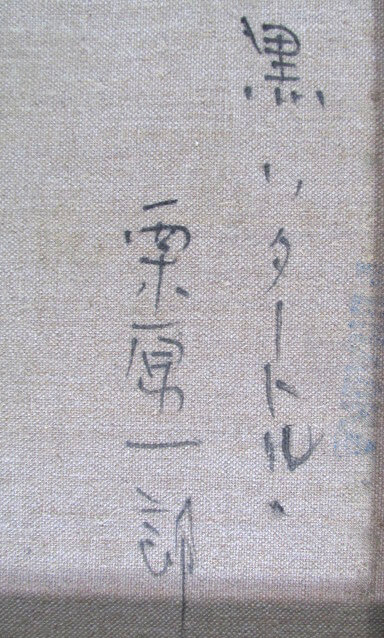 黒いタートル・
栗原一郎